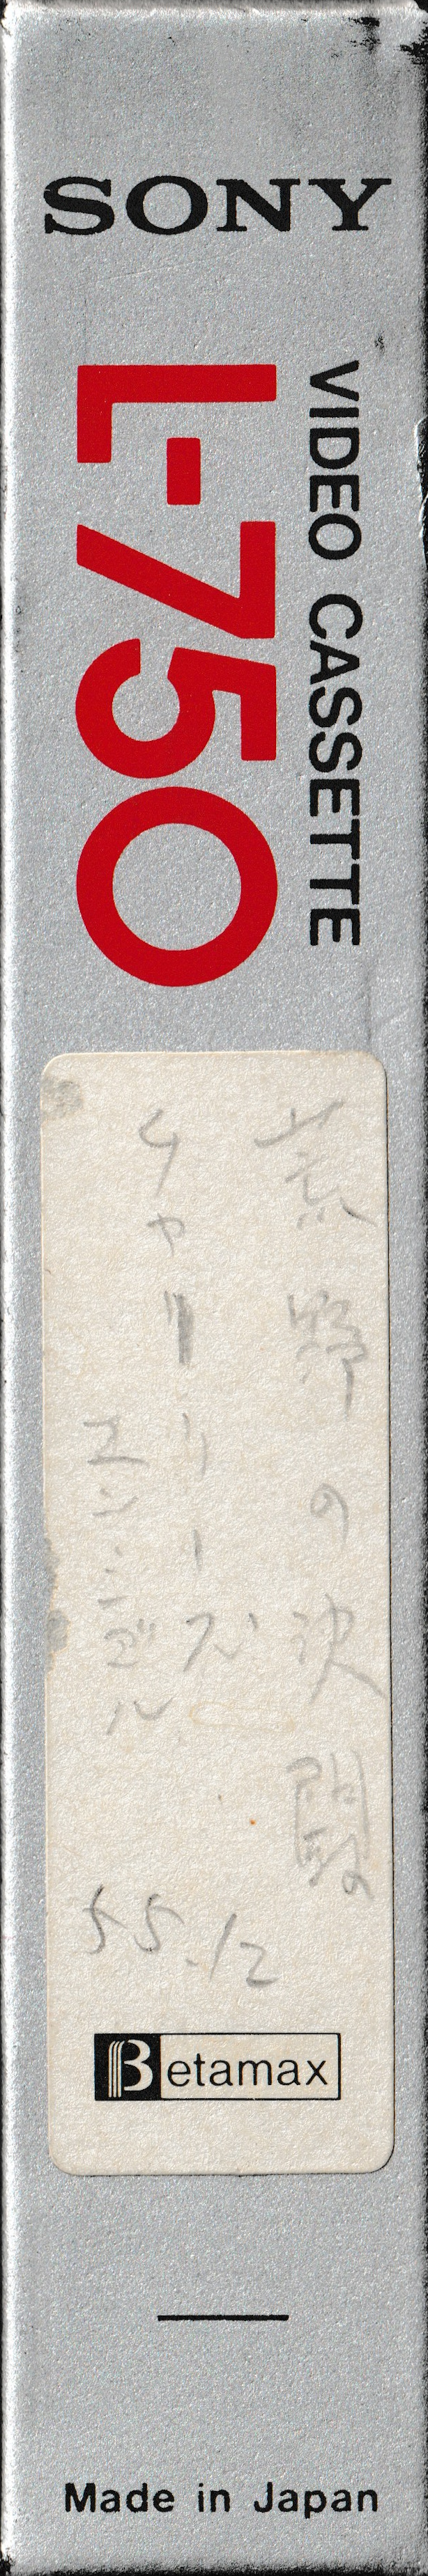 SONY
VIDEO CASSETTE
L-750
荒野の決闘
チャーリーズ
エンジェル
55.12
Betamax
Made in Japan